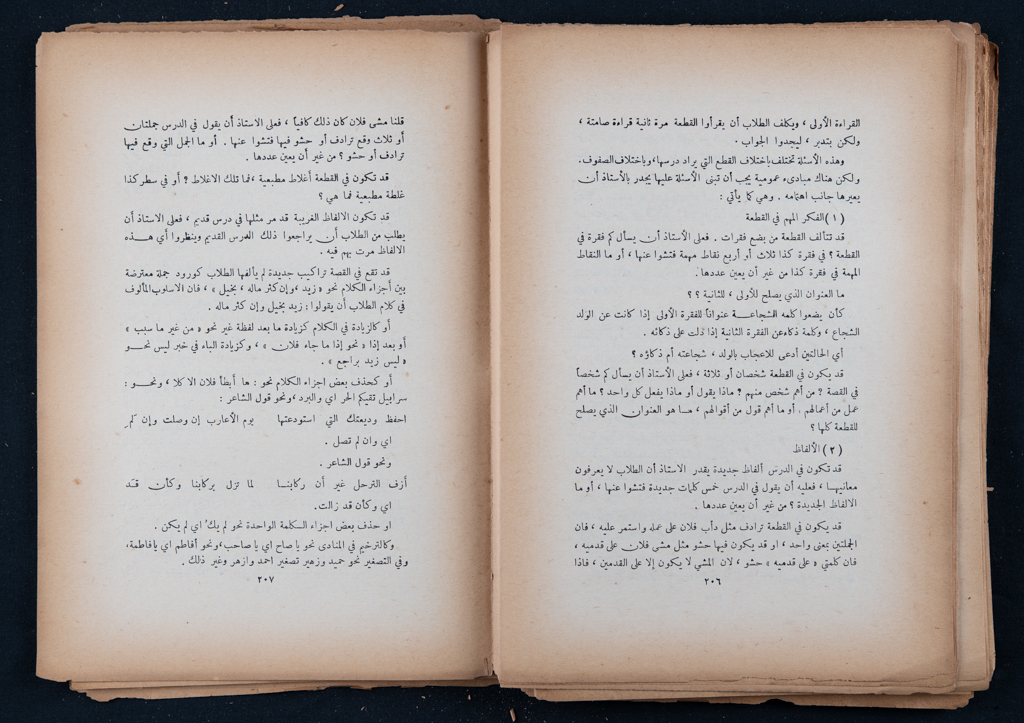 القراءة الأولى ، ويكلف الطلاب أن يقرأوا القطعة مرة ثانية قراءة صامتة ،
ولكن بتدبر ، ليجدوا الجواب .
وهذه الأسئلة تختلف باختلاف القطع التي يراد درسها، وباختلاف الصفوف.
ولكن هناك مبادىء عمومية يجب أن تبنى الأسئلة عليها يجدر بالأستاذ أن
يعيرها جانب اهتمامه . وهي كما يأتي :
( ١ ) الفكر المهم في القطعة
قد تتألف القطعة من بضع فقرات . فعلى الأستاذ أن يسأل كم فقرة في
القطعة ؟ في فقرة كذا ثلاث أو أربع نقاط مهمة فتشوا عنها ، أو ما النقاط
المهمة في فقرة كذا من غير أن يعين عددها.
ما العنوان الذي يصلح للأولى ، للثانية ؟ ؟
كأن يضعوا كلمه الشجاعة عنواناً للفقرة الأولى إذا كانت عن الولد
الشجاع ، وكلمة ذكاء عن الفقرة الثانية إذا دلت على ذكائه .
أي الحالتين أدعى للاعجاب بالولد ، شجاعته أم ذكاؤه ؟
قد يكون في القطعة شخصان أو ثلاثة ، فعلى الأستاذ أن يسأل كم شخصاً
في القصة ؟ من أهم شخص منهم ؟ ماذا يقول أو ماذا يفعل كل واحد ؟ ما أهم
عمل من أعمالهم . أو ما أهم قول من أقوالهم ، ما هو العنوان الذي يصلح
للقطعة كلها ؟
( ٢ ) الألفاظ
قد تكون في الدرس ألفاظ جديدة يقدر الاستاذ أن الطلاب لا يعرفون
معانيها ، فعليه أن يقول في الدرس خمس كلمات جديدة فتشوا عنها ، أو ما
الالفاظ الجديدة ؟ من غير أن يعين عددها .
قد يكون في القطعة ترادف مثل دأب فلان على عمله واستمر عليه ، فان
الجملتين بمعنى واحد ، او قد يكون فيها حشو مثل مشى فلان على قدميه ،
فان كلمتي « على قدميه » حشو ، لان المشي لا يكون إلا على القدمين ، فاذا
٢٠٦
قلنا مشى فلان كان ذلك كافياً ، فعلى الاستاذ أن يقول في الدرس جملتان
أو ثلاث وقع ترادف أو حشو فيها فتشوا عنها . أو ما الجمل التي وقع فيها
ترادف أو حشو ؟ من غير أن يعين عددها .
قد تكون في القطعة أغلاط مطبعية ، فما تلك الاغلاط ؟ أو في سطر كذا
غلطة مطبعية فما هي ؟
قد تكون الالفاظ الغريبة قد مر مثلها في درس قديم ، فعلى الاستاذ أن
يطلب من الطلاب أن يراجعوا ذلك الدرس القديم وينظروا أي هذه
الالفاظ مرت بهم فيه .
قد تقع في القصة تراكيب جديدة لم يألفها الطلاب كورود جملة معترضة
بين أجزاء الكلام نحو « زيد ، وإن كثر ماله ، بخيل » ، فان الاسلوب المألوف
في كلام الطلاب أن يقولوا : زيد بخيل وإن كثر ماله .
أو كالزيادة في الكلام كزيادة ما بعد لفظة غير نحو « من غير ما سبب »
أو بعد إذا « نحو إذا ما جاء فلان » ، وكزيادة الباء في خبر ليس نحو
« ليس زيد براجع » .
أو كحذف بعض اجزاء الكلام نحو : ها أبطأ فلان الا كلا ، ونحو :
سرابيل تقيكم الحر اي والبرد ، ونحو قول الشاعر :
احفظ وديعتك التي استودعتها يوم الأعارب إن وصلت وإن لم
اي وان لم تصل .
ونحو قول الشاعر .
أزف الترحل غير أن ركابنا لما تزل بركابنا وكأن قد
اي وكأن قد زالت .
او حذف بعض اجزاء الكلمة الواحدة نحو لم يك ُ اي لم يكن .
وكالترخيم في المنادى نحو يا صاح اي يا صاحب، ونحو أفاطم اي يا فاطمة،
وفي التصغير نحو حميد وزهير تصغير احمد وازهر وغير ذلك .
٢٠٧